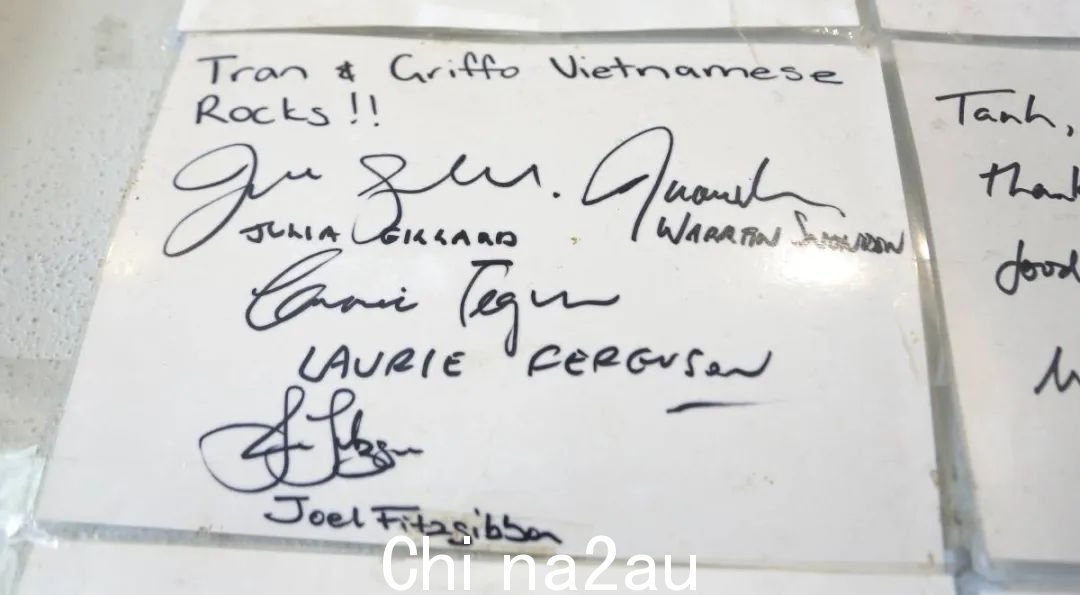 Tran & Griffo Vietnamese
Rocks!!
JULIA GILLARD
WARREN SNOWDON
LAURIE FERGUSON
Joel Fitzgibbon
Tanh,
food
Chi na2au